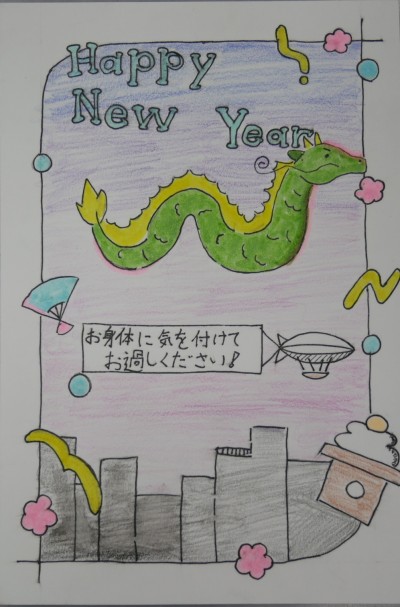 Happy
New Year
お身体に気を付けて
お過しください!